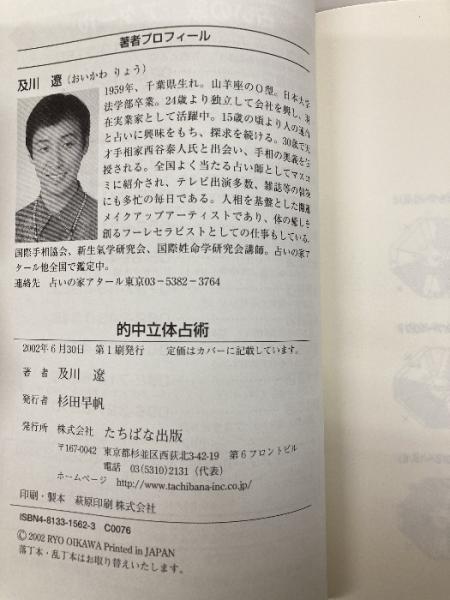 著者プロフィール
及川 遼(おいかわ りょう)
1959年、千葉県生れ。山羊座のO型。日本大学
法学部卒業。24歳より独立して会社を興し、現
在実業家として活躍中。15歳の頃より人の運命
と占いに興味をもち、探求を続ける。30歳で天
才手相家西谷泰人氏と出会い、手相の奥義を伝
授される。全国よく当たる占い師としてマスコ
ミに紹介され、テレビ出演多数、雑誌等の執筆
にも多忙の毎日である。人相を基盤とした開運
メイクアップアーティストであり、体の癒しを
創るフーレセラピストとしての仕事もしている。
国際手相協会、新生氣学研究会、国際姓命学研究会講師。占いの家ア
タール他全国で鑑定中。
連絡先 占いの家アタール東京03-5382-3764
的中立体占術
2002年6月30日 第1刷発行 定価はカバーに記載しています。
著 者 及川 遼
発行者 杉田早帆
発行所 株式会社 たちばな出版
〒167-0042 東京都杉並区西荻北3-42-19 第6フロントビル
電話 03(5310)2131(代表)
ホームページ http://www.tachibana-inc.co.jp/
印刷・製本 萩原印刷株式会社
ISBN4-8133-1562-3 C0076
©2002 RYO OIKAWA Printed in JAPAN
落丁本・乱丁本はお取り替えいたします。